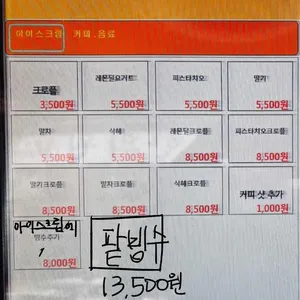 아이스크림 커피.음료
크로플 레몬밀요거트 피스타치오 딸기
3,500원 5,500원 5,500원 5,500원
말차 식혜 레몬밀크로플 피스타치오크로플
5,500원 5,500원 8,500원 8,500원
딸기크로플 말차크로플 식혜크로플 커피 샷 추가
8,500원 8,500원 8,500원 1,000원
아이스크림에
8,000원
팥빙수
13,500원